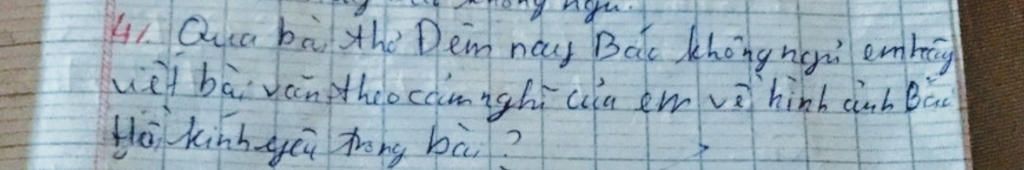 không ngủ.
4/. Qua bài thơ Đêm nay Bác không ngủ em hãy
viết bài văn theo cảm nghĩ của em về hình ảnh Bác
Hồ kính yêu trong bài?